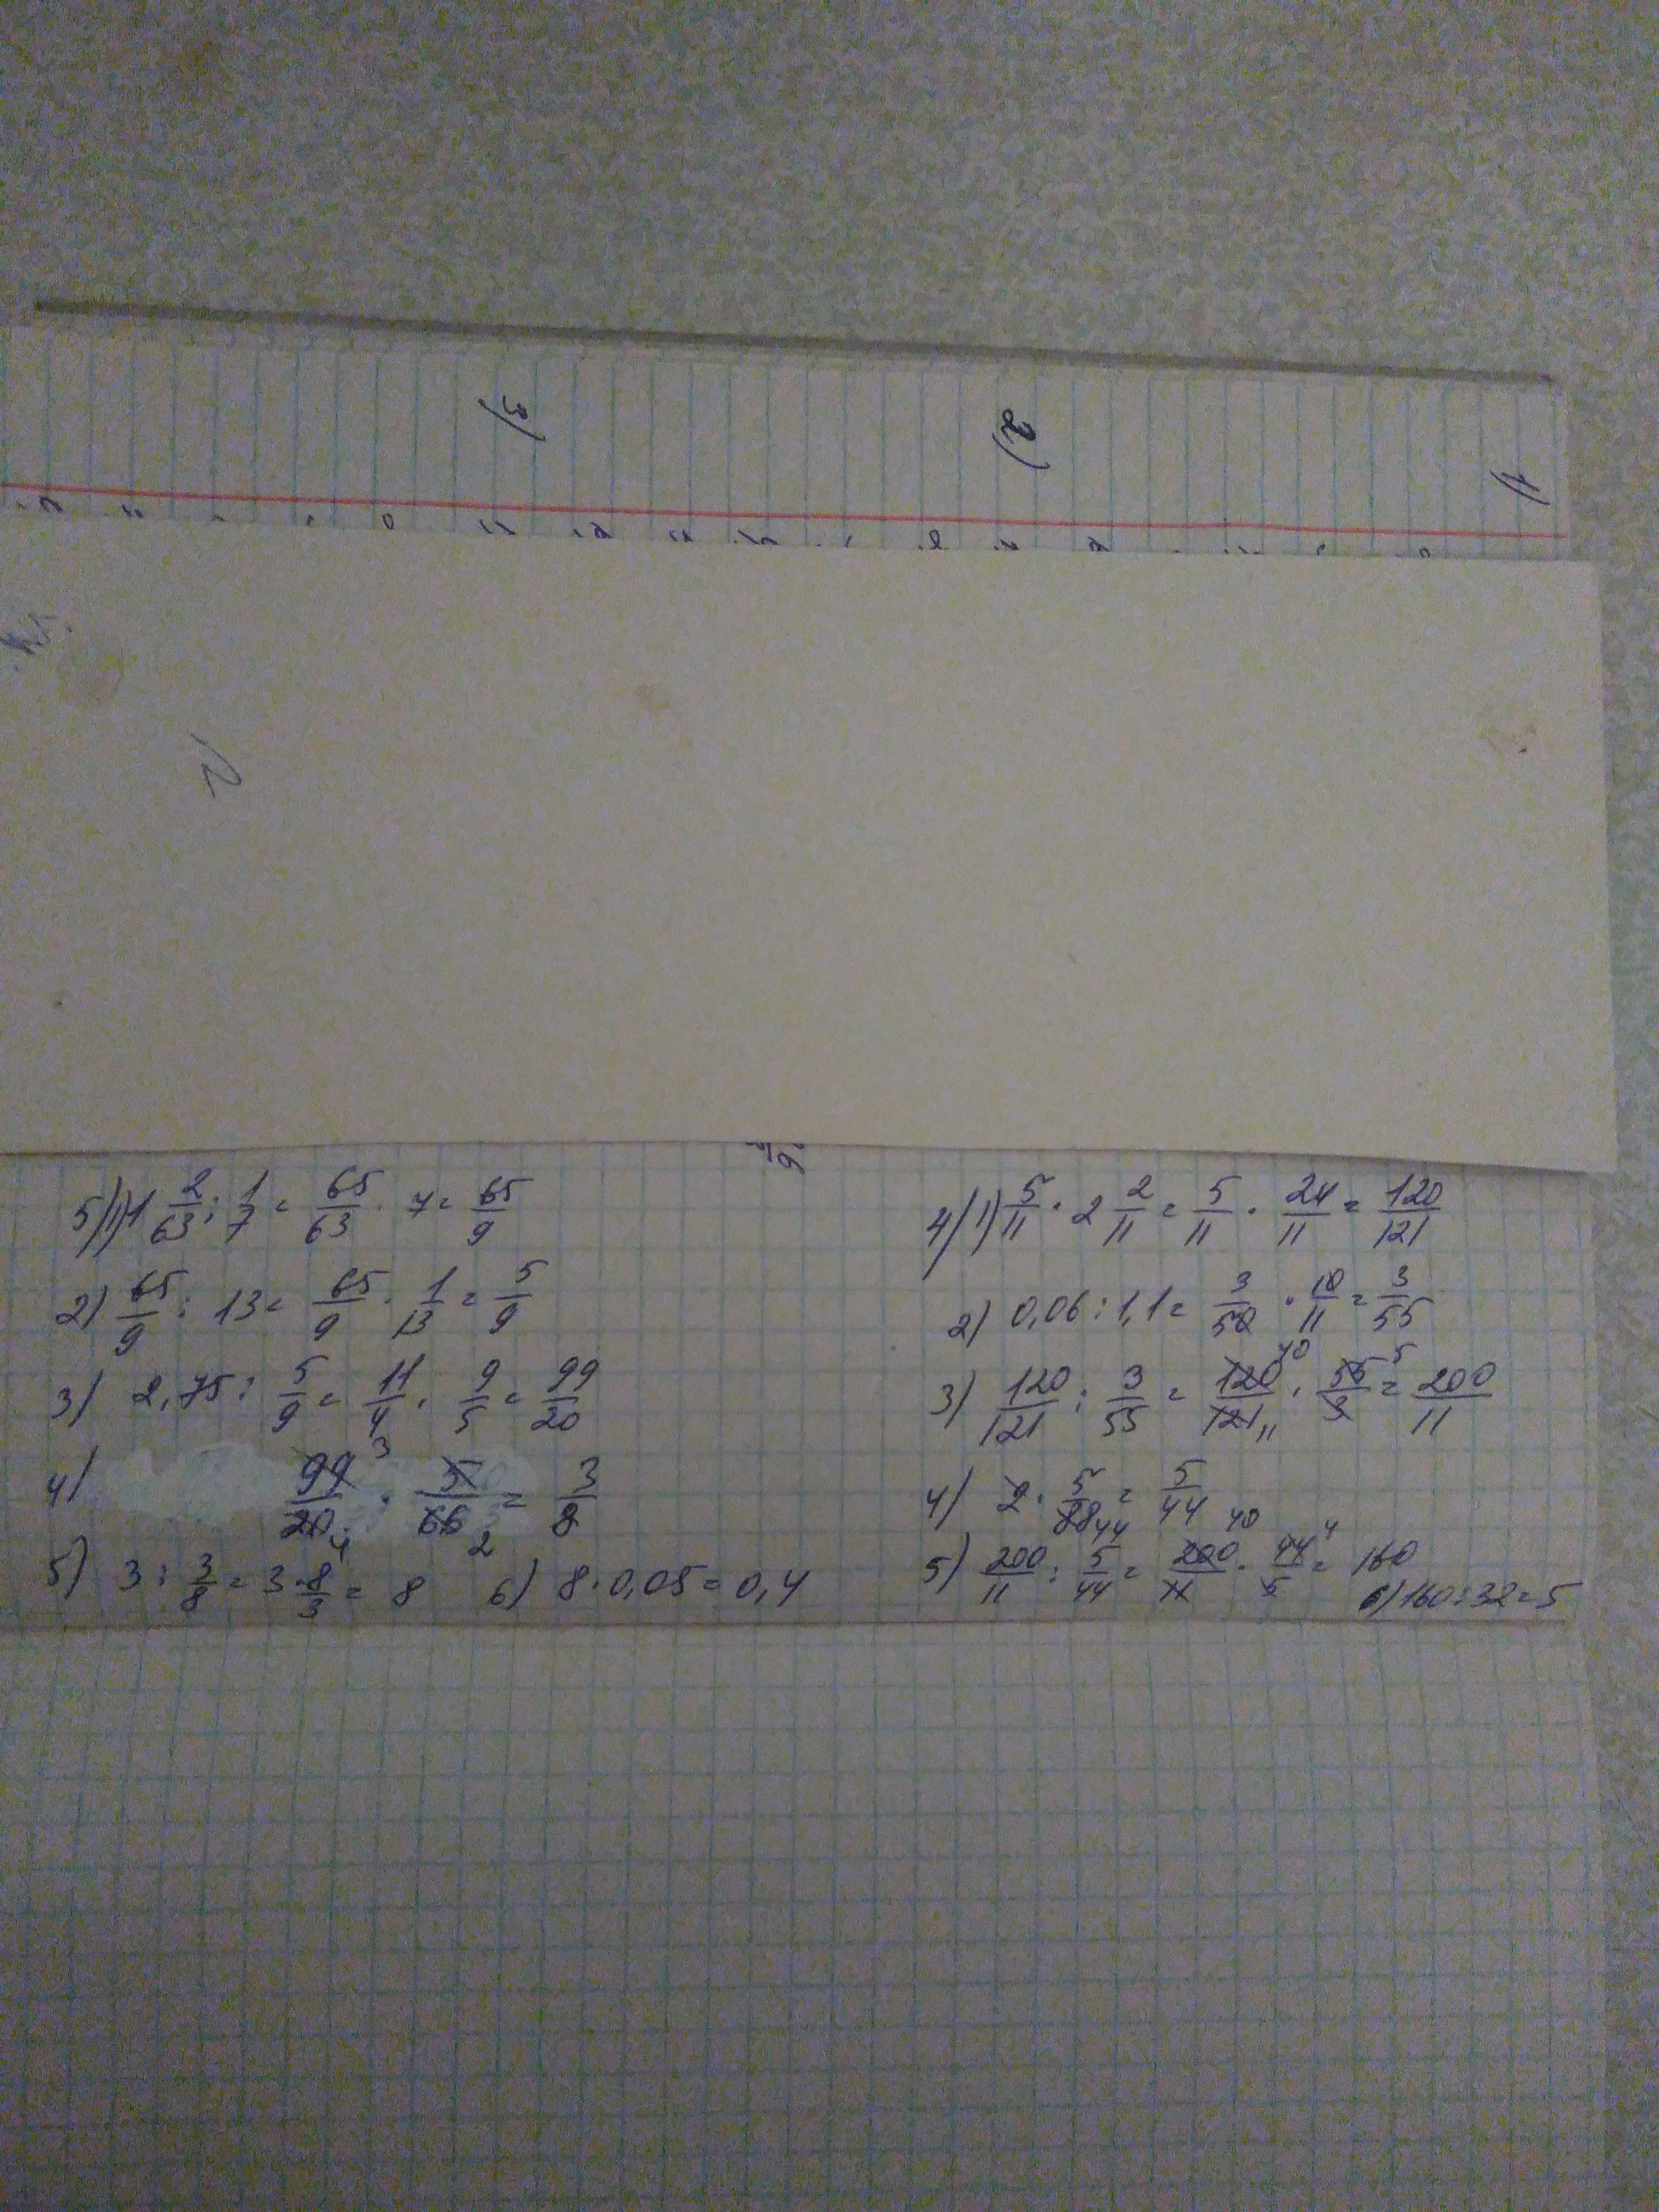 3)
2)
1)
5)1) 1 2/63 : 1/7 = 65/63 · 7 = 65/9
2) 65/9 : 13 = 65/9 · 1/13 = 5/9
3) 2,75 : 5/9 = 11/4 · 9/5 = 99/20
4) 99/20 · 5/66 = 3/8
3 4 2
5) 3 : 3/8 = 3 · 8/3 = 8 6) 8 · 0,05 = 0,4
4)1) 5/11 · 2 2/11 = 5/11 · 24/11 = 120/121
2) 0,06 : 1,1 = 3/50 · 10/11 = 3/55
3) 120/121 : 3/55 = 120/121 · 55/3 = 200/11
40 11 5
4) 2 · 5/88 = 5/44
44
5) 200/11 : 5/44 = 200/11 · 44/5 = 160
40 4
6) 160 : 32 = 5